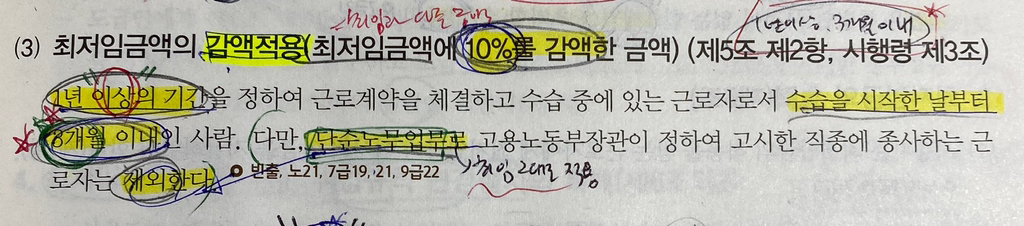 (1년이상, 3개월 이내
(3) 최저임금액의 감액적용(최저임금액에 10%를 감액한 금액) (제5조 제2항, 시행령 제3조)
1년 이상의 기간을 정하여 근로계약을 체결하고 수습 중에 있는 근로자로서 수습을 시작한 날부터
3개월 이내인 사람. 다만, 단순노무업무로 고용노동부장관이 정하여 고시한 직종에 종사하는 근
로자는 제외한다. 빈출, 노21, 7급19, 21, 9급22
최임 그대로 적용